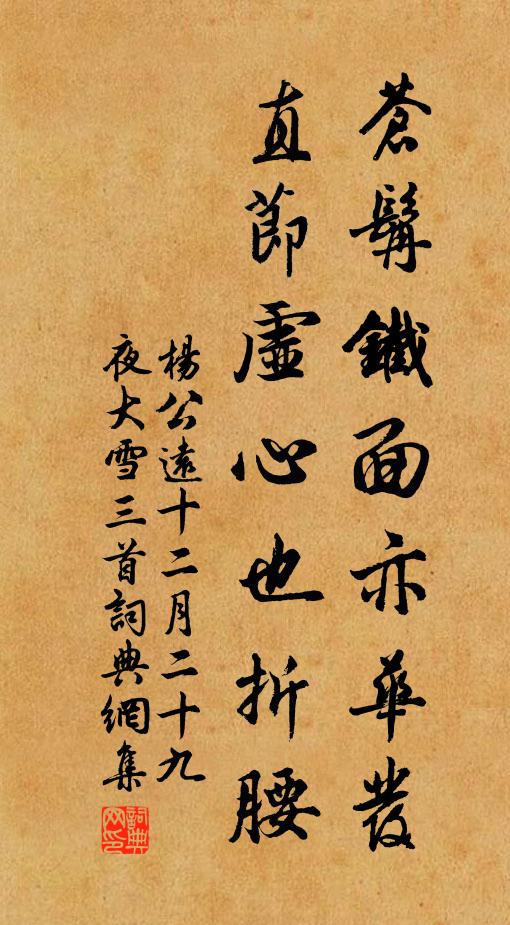 蒼髯鐵面亦華髮
直節虛心也折腰
楊公遠十二月二十九
夜大雪三首詞典網集
詞典网印